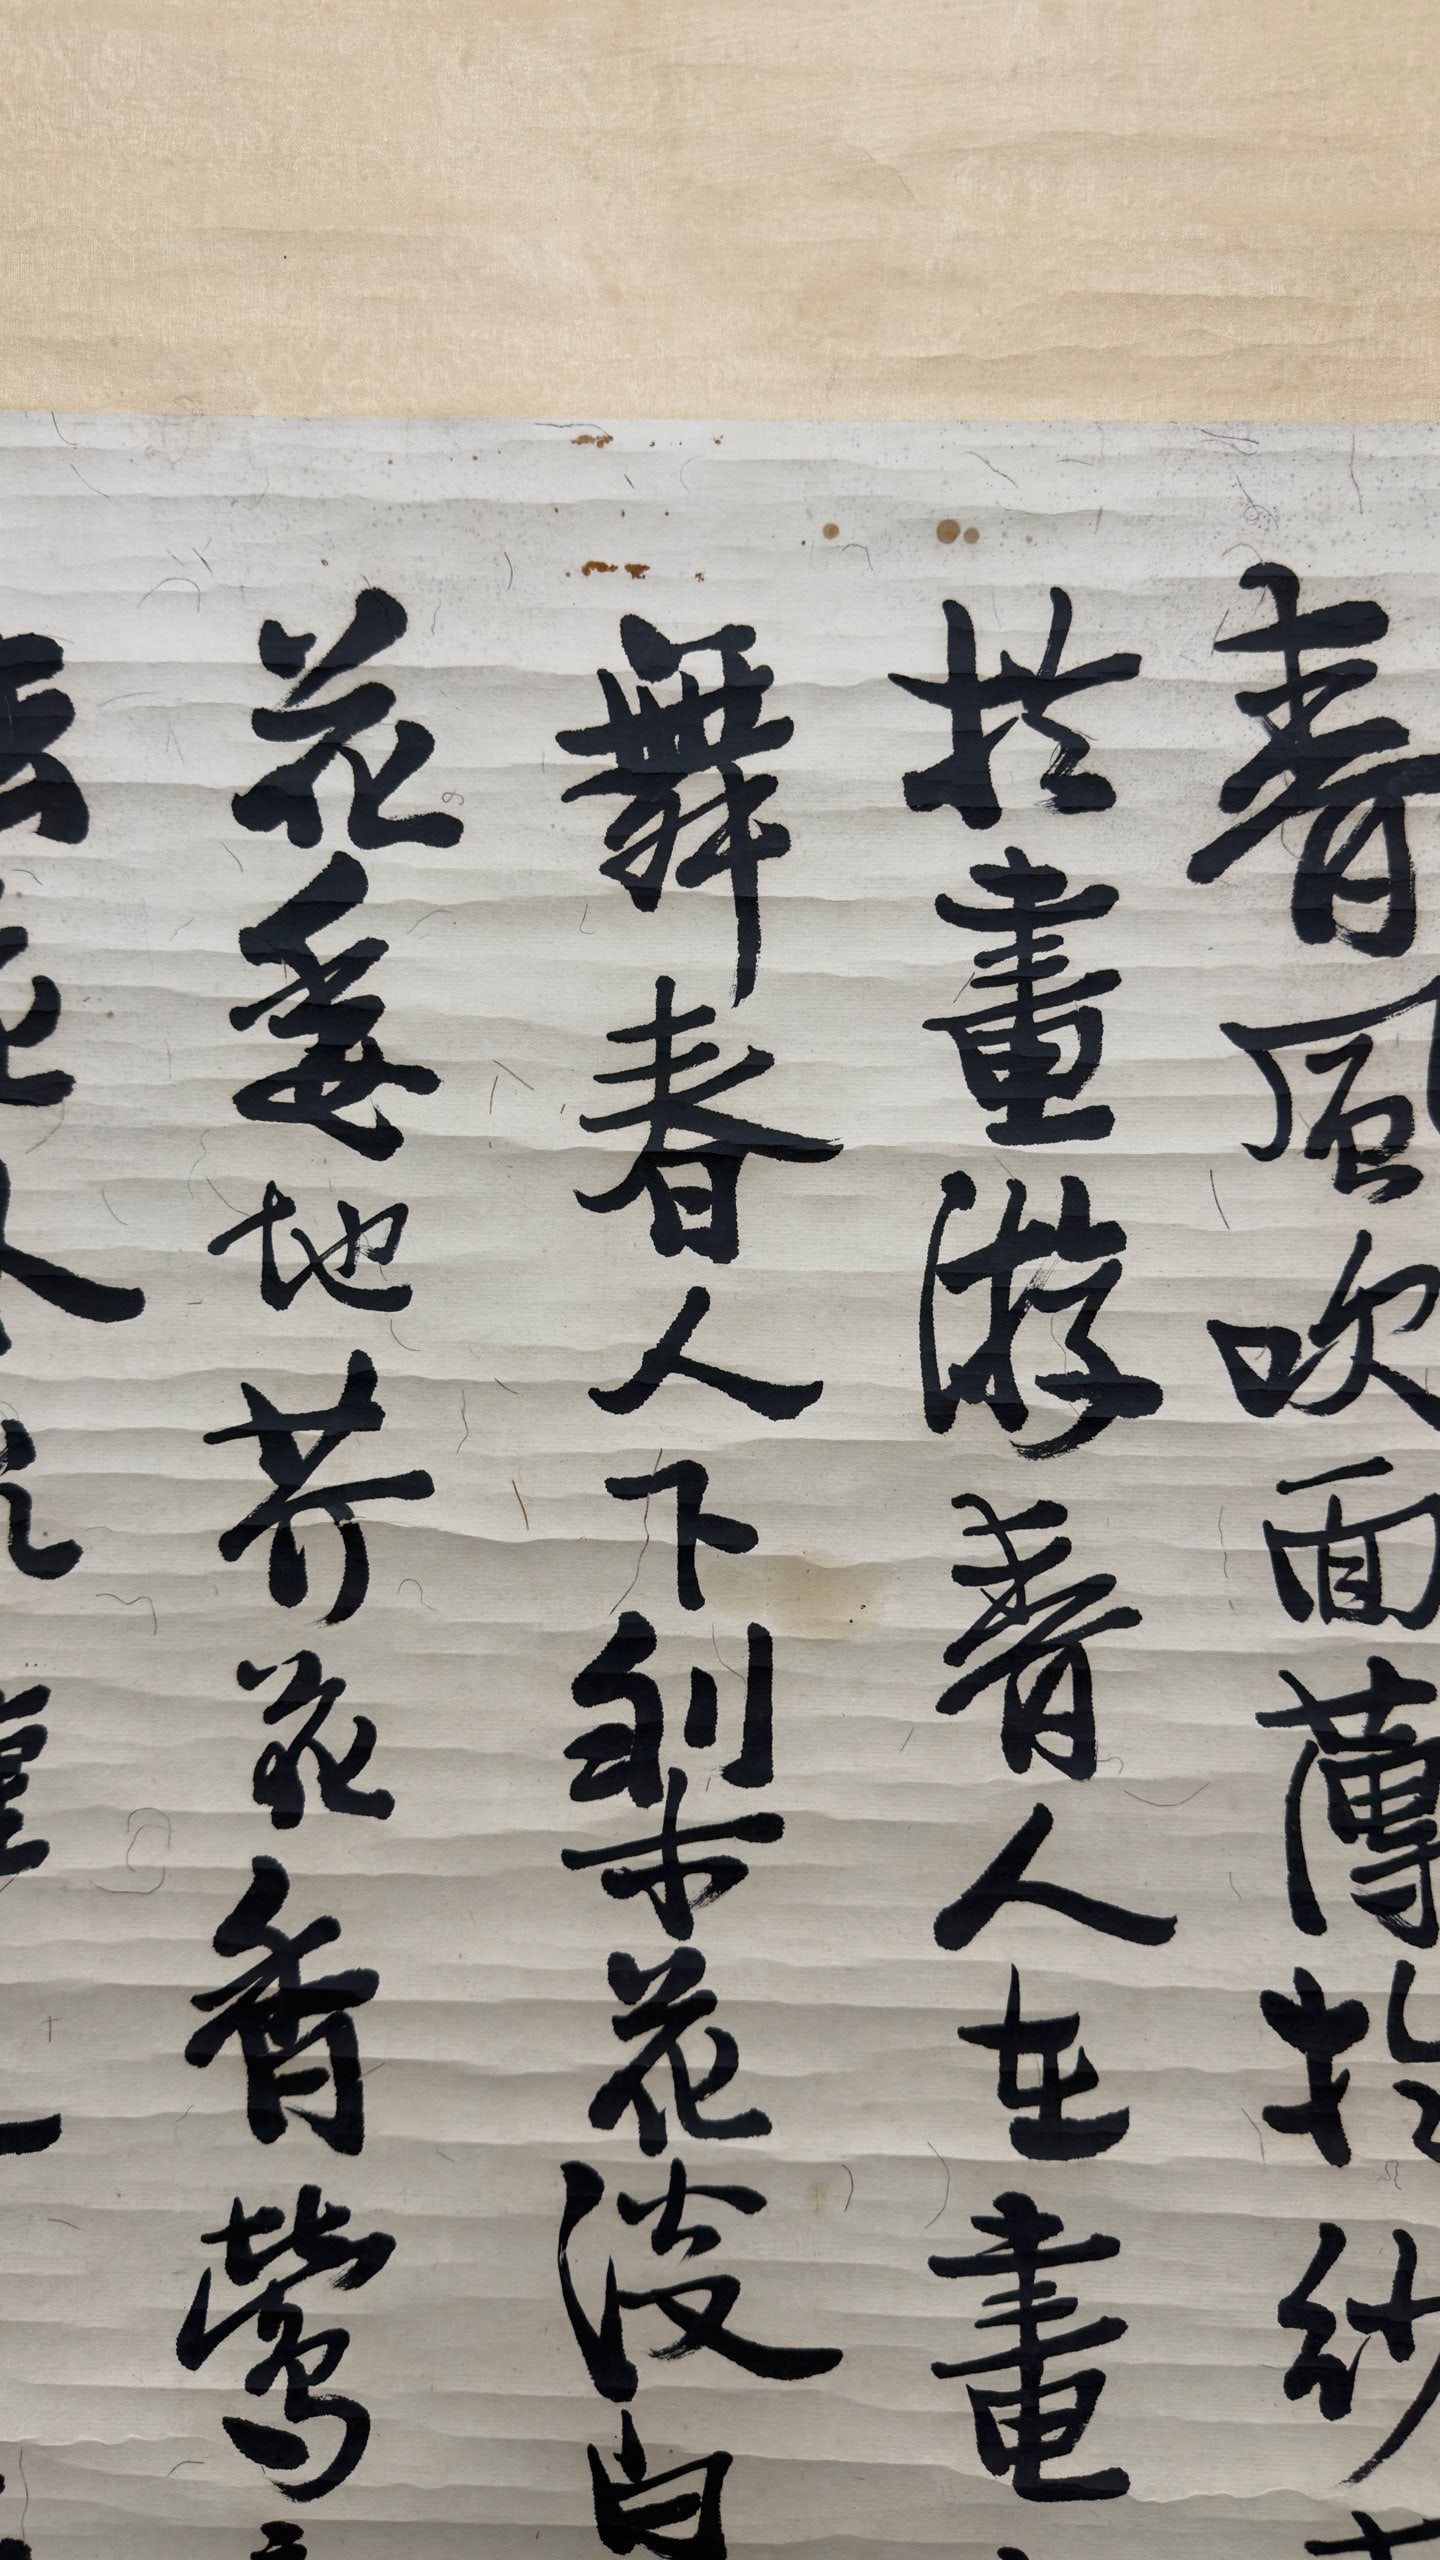 春風吹面薄於紗
於畫游春人在畫
舞春人下梨花淡白
花委地芥花香鶯